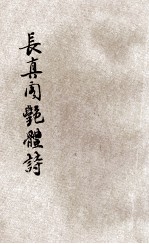 長真閣艷體詩